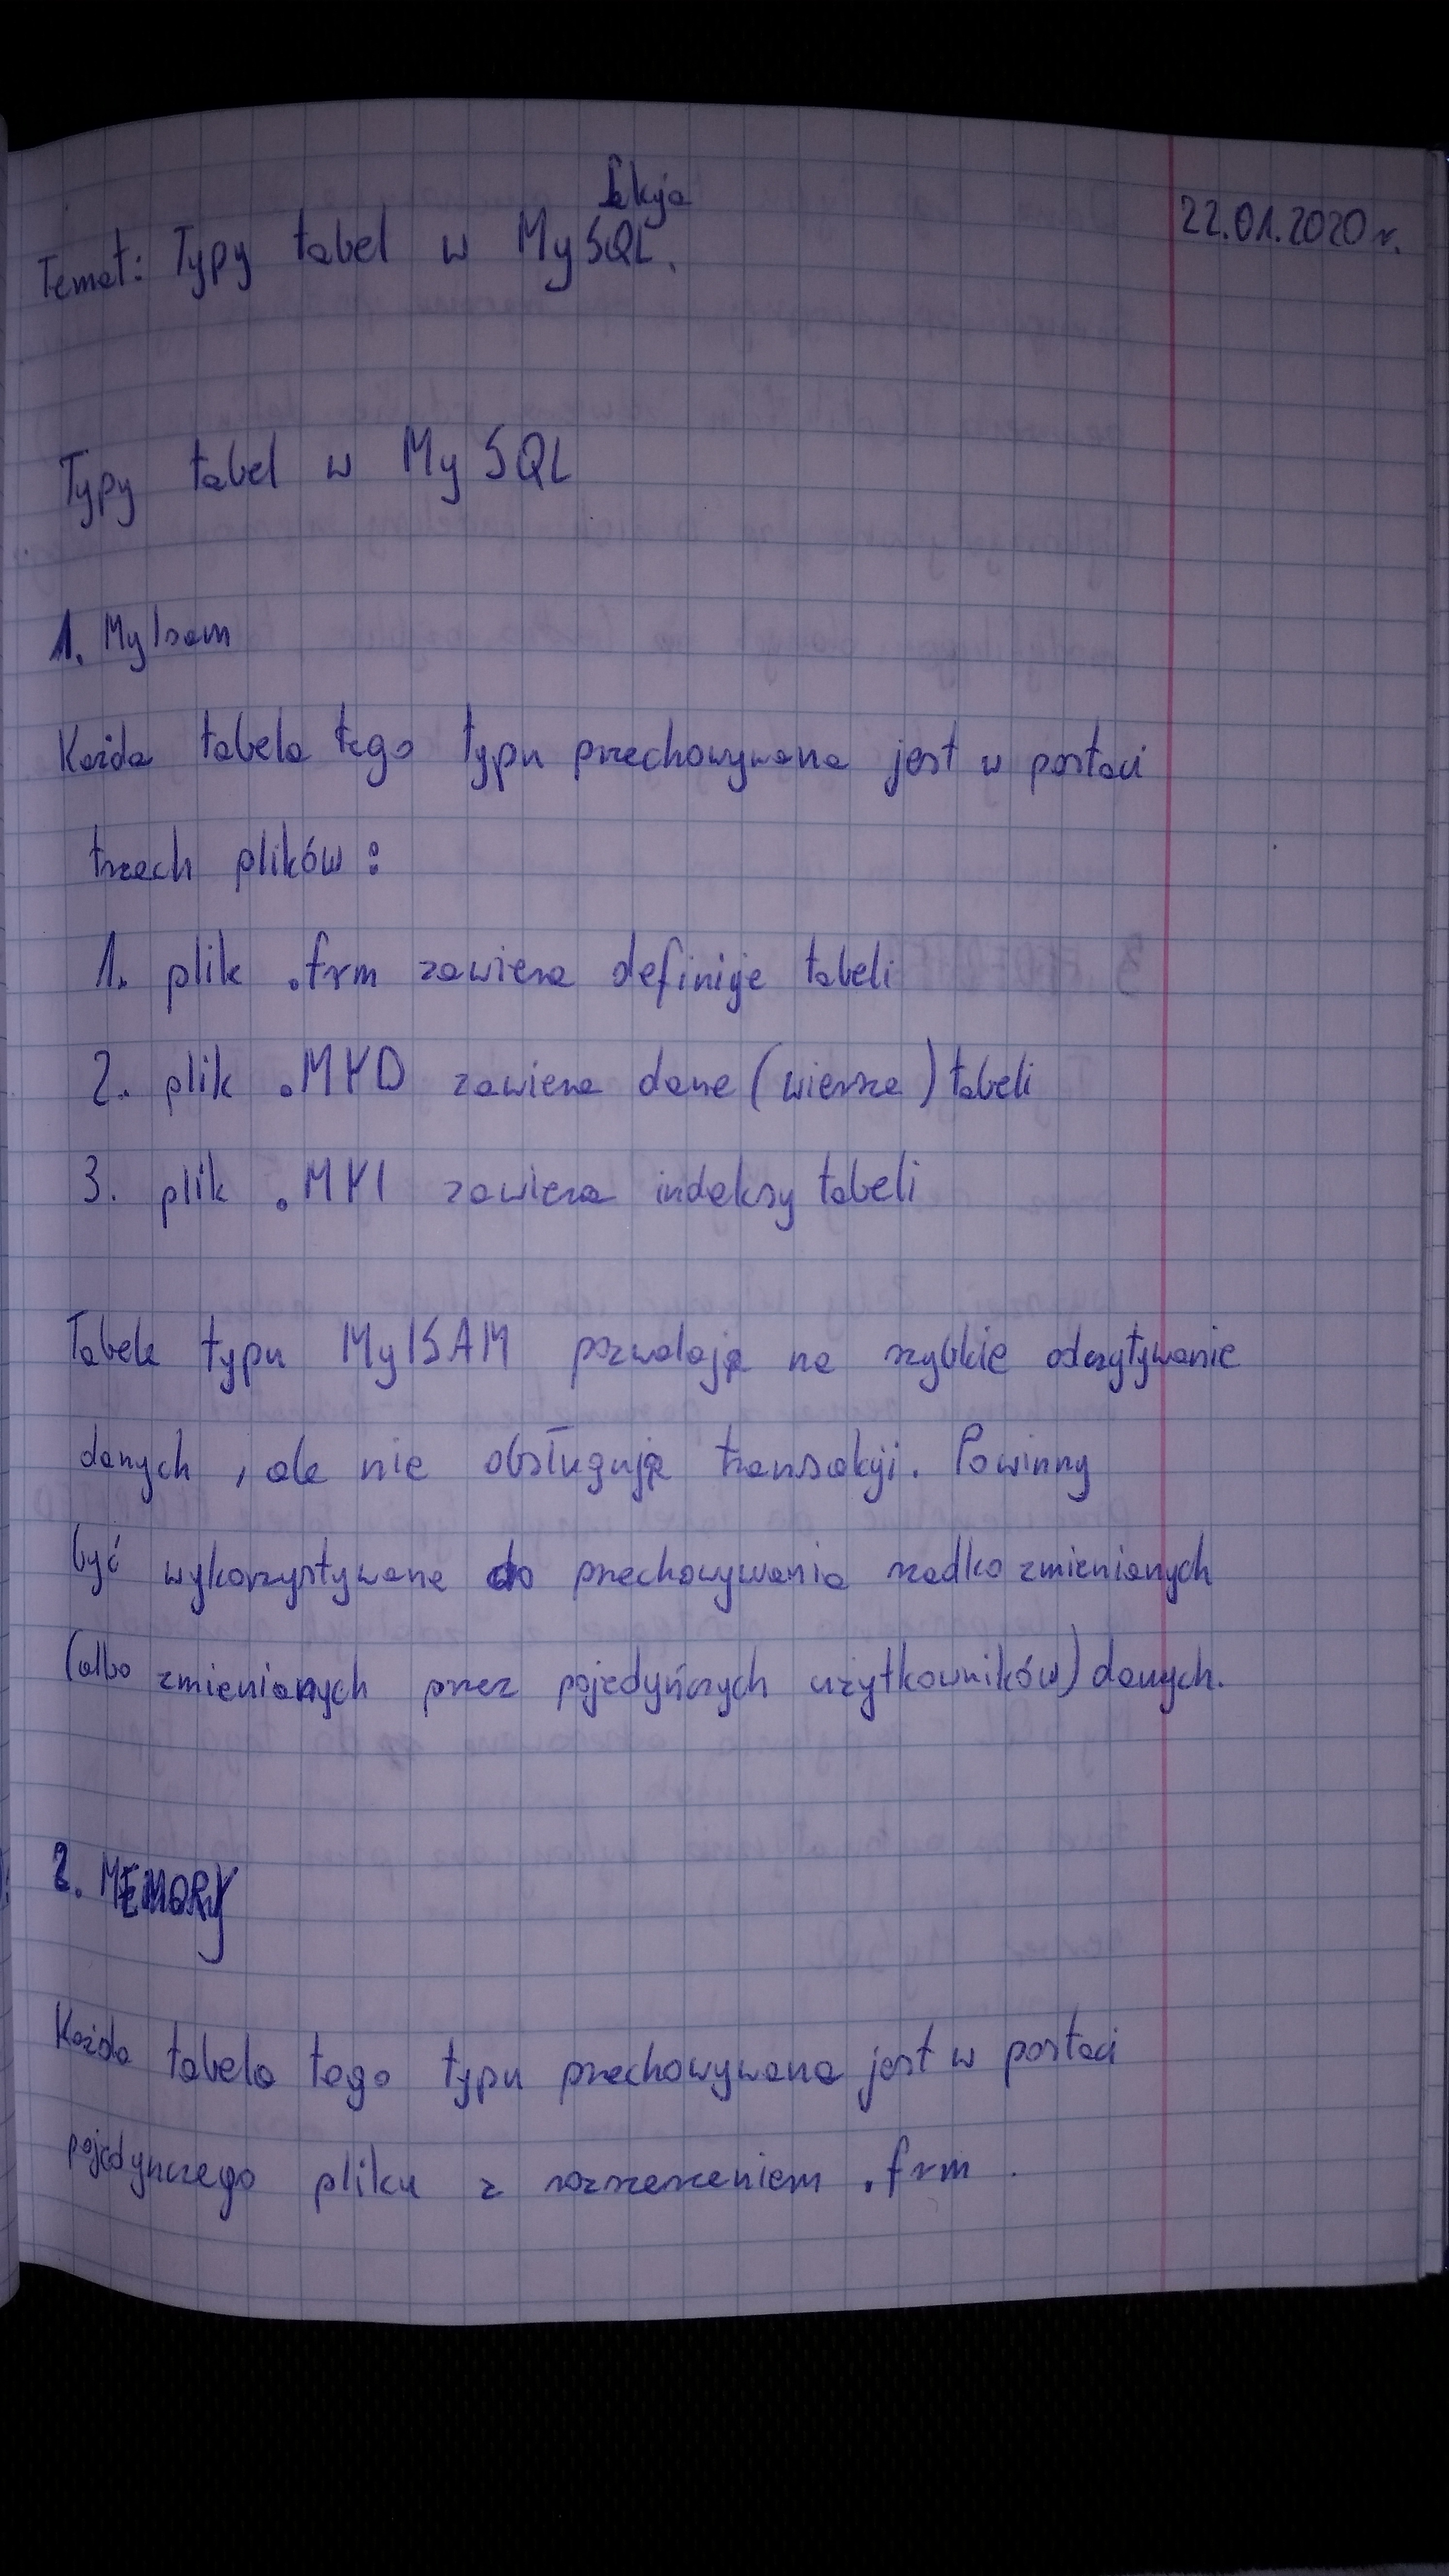 Lekcja
22.01.2020 r.
Temat: Typy tabel w MySQL.
Typy tabel w MySQL
1. MyIsam
Każda tabela tego typu przechowywana jest w postaci
trzech plików:
1. plik .frm zawiera definicje tabeli
2. plik .MYD zawiera dane (wiersze) tabeli
3. plik .MYI zawiera indeksy tabeli
Tabele typu MyISAM pozwalają na szybkie odczytywanie
danych, ale nie obsługują transakcji. Powinny
być wykorzystywane do przechowywania rzadko zmienianych
(albo zmienianych przez pojedyńczych użytkowników) danych.
2. MEMORY
Każda tabela tego typu przechowywana jest w postaci
pojedynczego pliku z rozszerzeniem .frm.